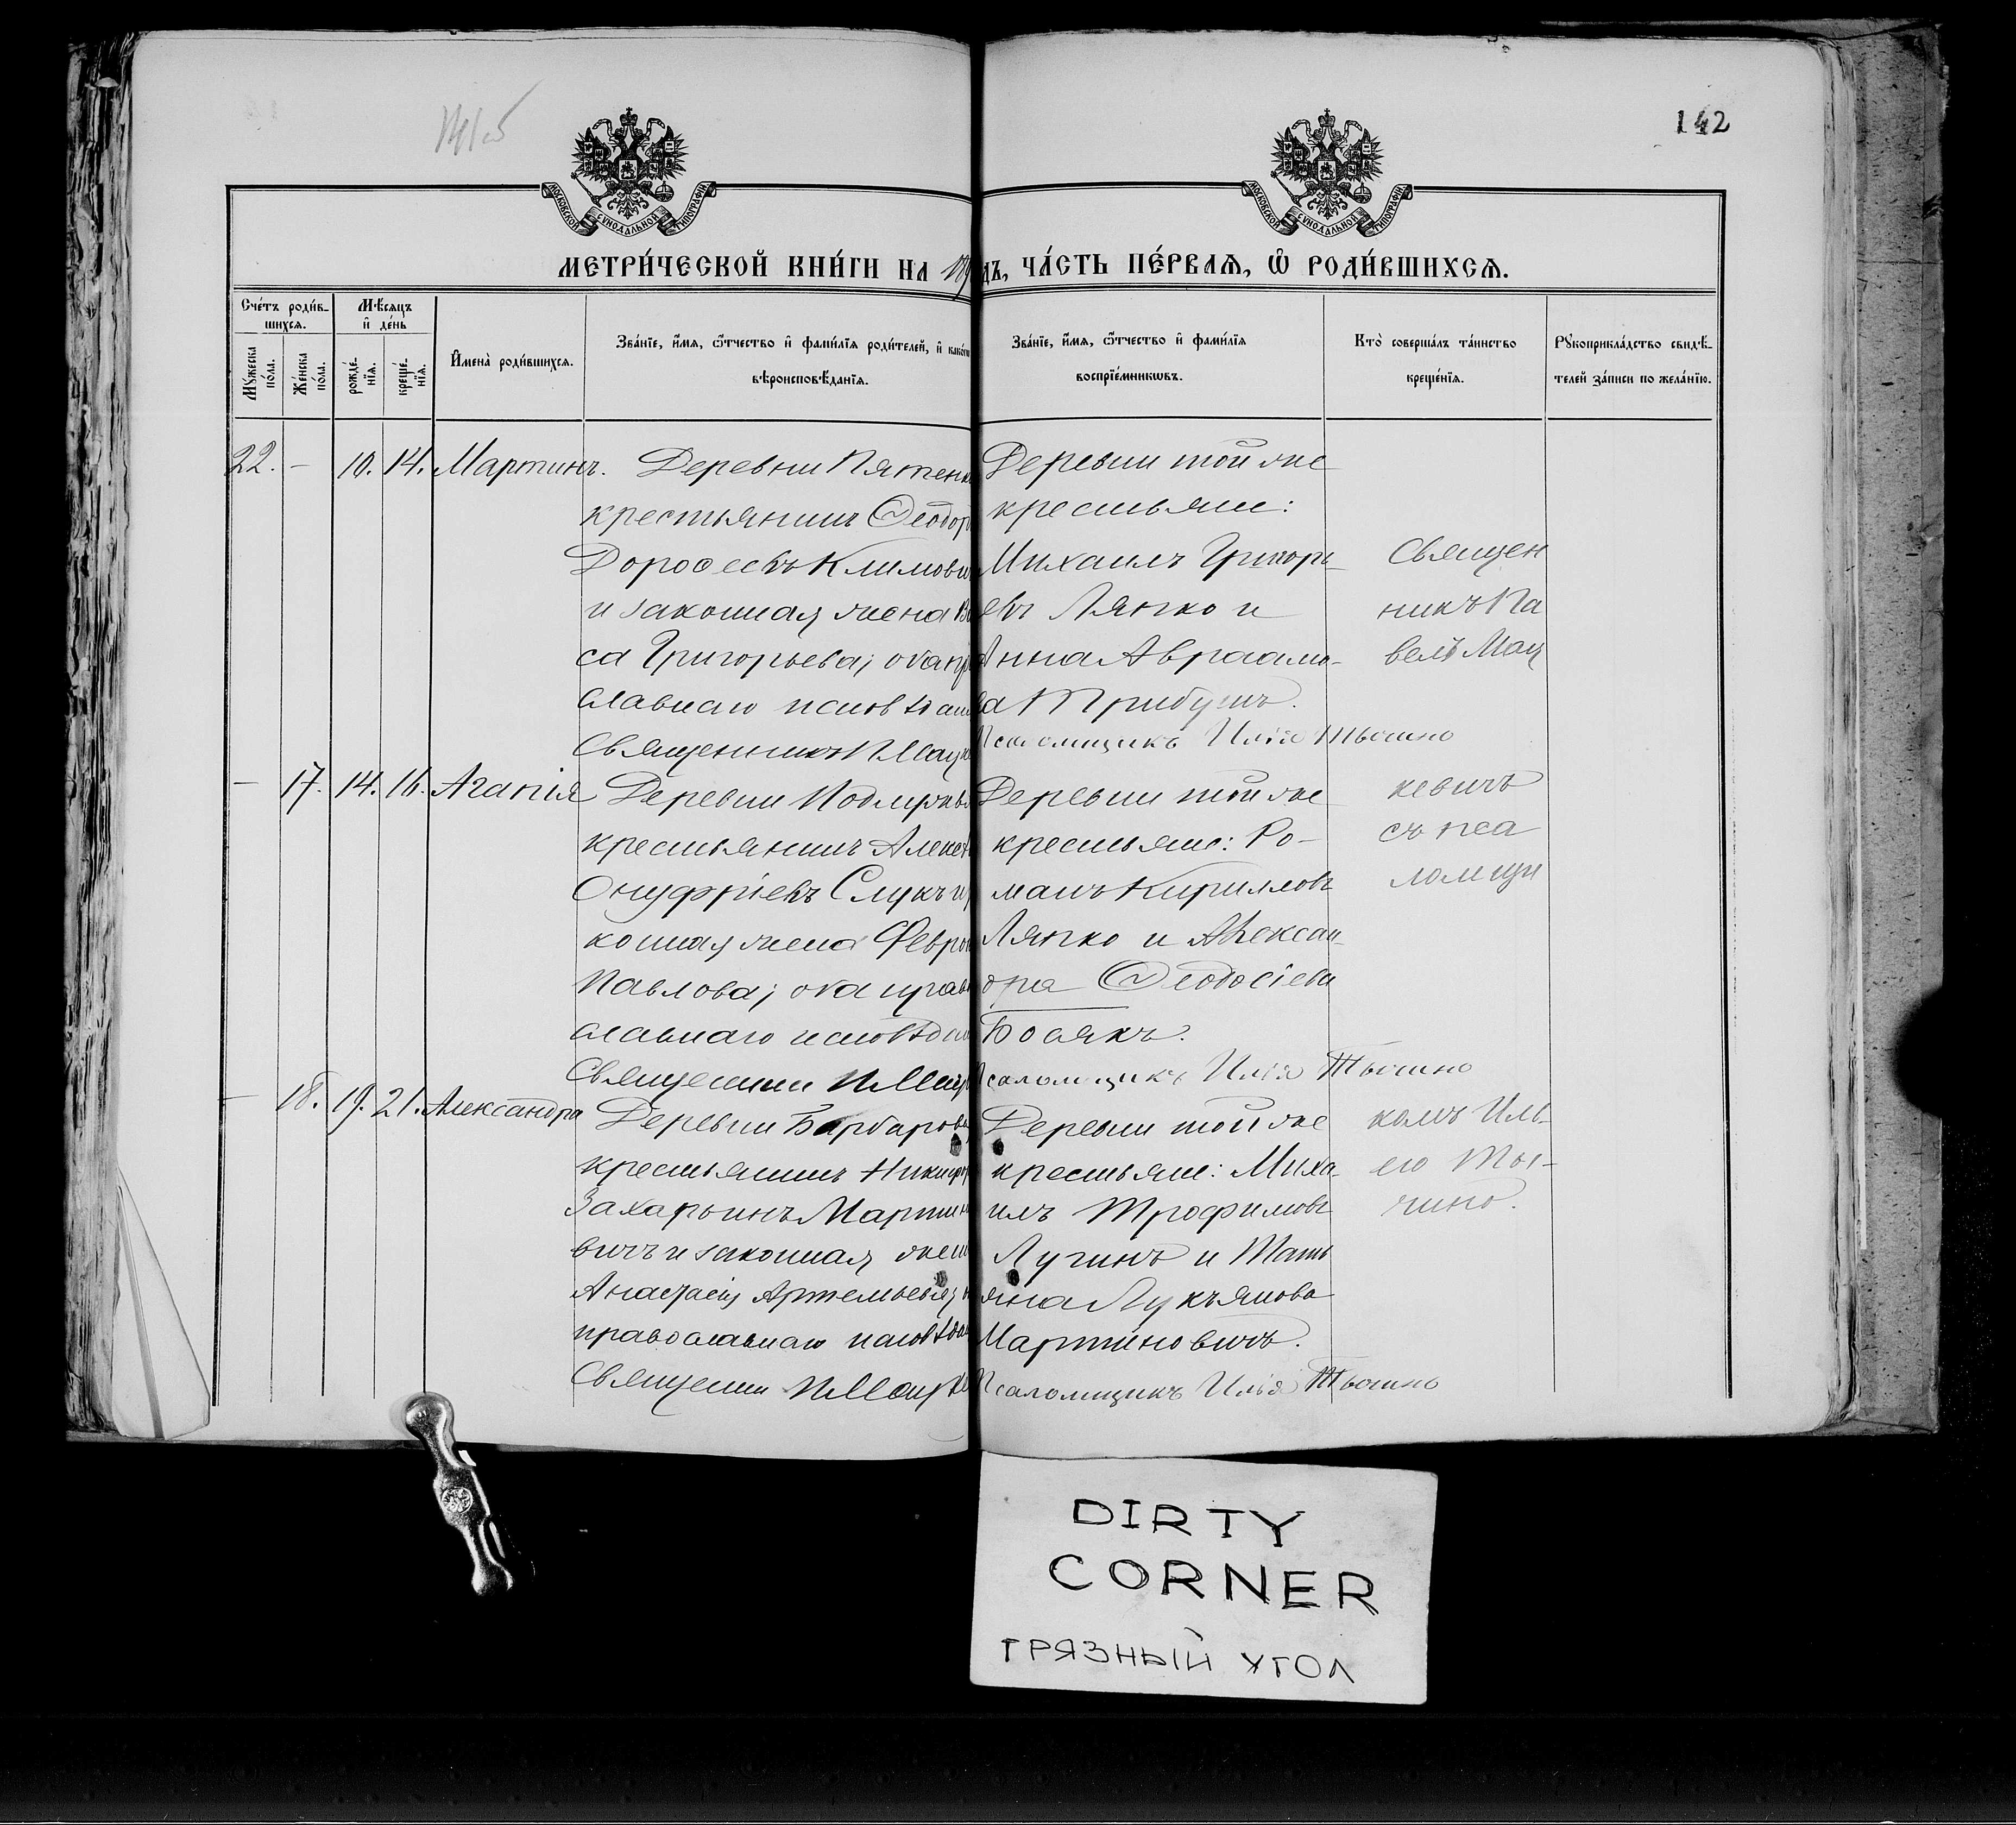 142
МОСКОВСКОЙ СѴНОДАЛЬНОЙ ТИПОГРАФІИ
МОСКОВСКОЙ СѴНОДАЛЬНОЙ ТИПОГРАФІИ
МЕТРИ́ЧЕСКОЙ КНИ́ГИ НА ДЪ, ЧА́СТЬ ПЕ́РВАЯ, Ѽ РОДИ́ВШИХСЯ.
Сче́тъ роди́в-
шихся.
Му́жеска по́ла.
Же́нска по́ла.
Мѣ́сяцъ
и҆ де́нь
рожде́нїя.
креще́нїя.
И҆мена̀ роди́вшихся.
Зва́нїе, и҆́мя, ѻ҆́тчество и҆ фами́лїя роди́телей, и҆ како́гѡ
вѣроисповѣ́данїя.
Зва́нїе, и҆́мя, ѻ҆́тчество и҆ фами́лїя
воспрїе́мникѡвъ.
Кто̀ соверша́лъ та́инство
креще́нїя.
Рꙋкоприкла́дство свидѣ́-
телей за́писи по жела́нїю.
22. - 10. 14. Мартинъ.
Деревни Пятенк
крестьянинъ Ѳеодор
Дороѳеевъ Климови
и законная жена Ва
са Григорьева; оба пр
славнаго исповѣдан
Священникъ П Мацк
Деревни той же
крестьяне:
Михаилъ Григорь-
евъ Ляпко и
Анна Авраамо-
ва Трибушъ.
Псаломщикъ Илія
- 17. 14. 16. Агапія
Деревни
крестьянинъ Алексѣ
Онуфріевъ Слукъ и
конная жена Февро
Павлова; оба прав
славнаго исповѣдан
Священни П Мацк
Деревни той же
крестьяне: Ро-
манъ Кирилловъ
Ляпко и Алексан-
дра Ѳеодосіева
Босякъ.
Псаломщикъ Илія
- 18. 19. 21. Александра
Деревни Барбаров
крестьянинъ Никифор
Захарьинъ Мартин
вичъ и законная жен
Анастасія Артемьева;
православнаго исповѣдан
Священни П Мацке
Деревни той же
крестьяне: Миха-
илъ Трофимовъ
Лугинъ и Тать
яна Лукъянова
Мартиновичъ.
Псаломщикъ Илія
Священ
никъ Па
велъ Мац
кевичъ
съ пса
ломщи
комъ Иль-
ею
DIRTY
CORNER
ГРЯЗНЫЙ УГОЛ